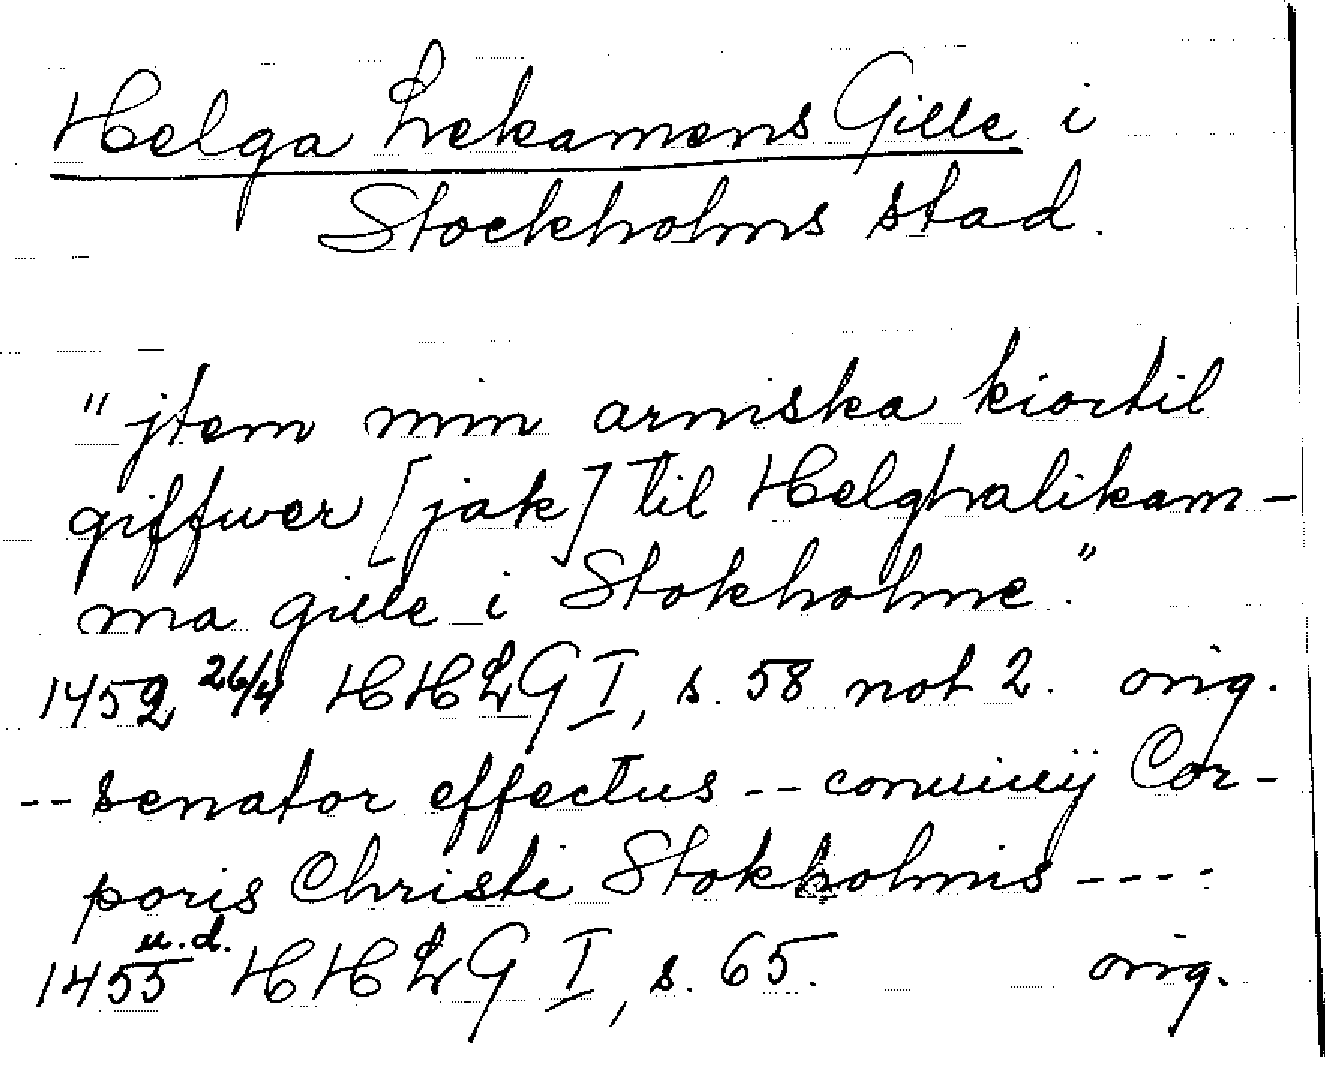 Helga Lekamens Gille i
Stockholms stad.
"jtem min arniska kiortil
giffwer [jak] til Helghalikam-
ma gille i Stokholme."
1452 26/4 HHLG I, s. 58 not 2. orig.
-- senator effectus -- conuiuij Cor-
poris Christi Stokholmis ----
1455 u.d. HHLG I, s. 65. orig.